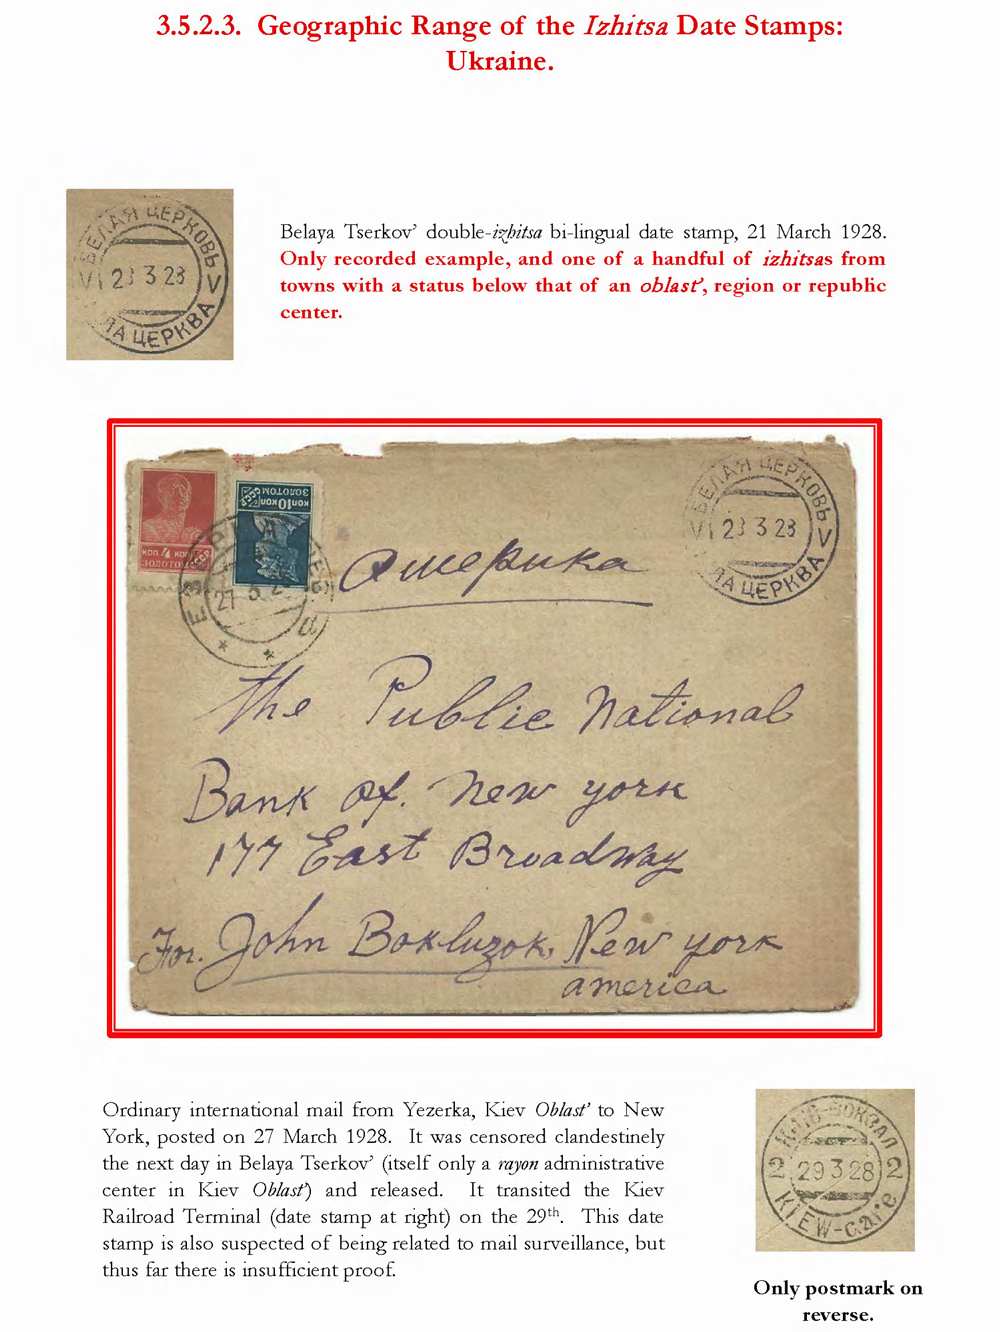 3.5.2.3. Geographic Range of the Izhitsa Date Stamps:
Ukraine.
БЕЛАЯ ЦЕРКОВЬ
V 3 28 V
ЛА ЦЕРКВА
Belaya Tserkov’ double-izhitsa bi-lingual date stamp, 21 March 1928.
Only recorded example, and one of a handful of izhitsas from
towns with a status below that of an oblast’, region or republic
center.
КОП 4 КОП
ЗОЛОТОМ
СССР
КОП 10 КОП
ЗОЛОТОМ
СССР
27 3
Америка
БЕЛАЯ ЦЕРКОВЬ
V 3 28 V
ЛА ЦЕРКВА
The Public National
Bank of. New york
177 East Broadway
For. John Bokluzok, New york
america
Ordinary international mail from Yezerka, Kiev Oblast’ to New
York, posted on 27 March 1928. It was censored clandestinely
the next day in Belaya Tserkov’ (itself only a rayon administrative
center in Kiev Oblast’) and released. It transited the Kiev
Railroad Terminal (date stamp at right) on the 29th. This date
stamp is also suspected of being related to mail surveillance, but
thus far there is insufficient proof.
ВОКЗАЛ
2 29 3 28 2
KIEW-gare
Only postmark on
reverse.